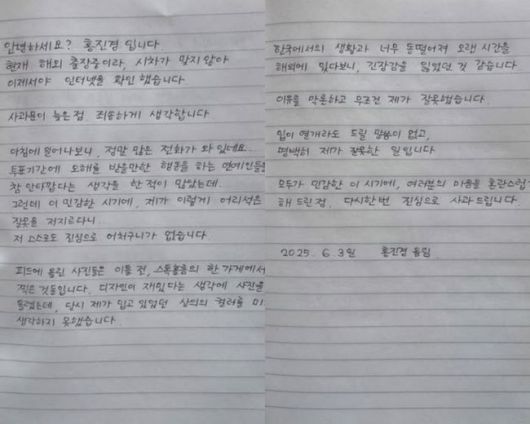 안녕하세요? 홍진경 입니다.
현재 해외 출장중이라, 시차가 맞지 않아
이제서야 인터넷을 확인 했습니다
사과문이 늦은점 죄송하게 생각합니다
아침에 일어나보니, 정말 많은 전화가 와 있데요..
투표기간에 오해를 받을만한 행동을 하는 연예인들을
참 안타깝다는 생각을 한적이 많았는데..
그런데 이 민감한 시기에, 제가 이렇게 어리석은
잘못을 저지르다니..
저 스스로도 진심으로 어처구니가 없습니다.
피드에 올린 사진들은 이틀 전, 스톡홀름의 한 가게에서
찍은 것들입니다. 디자인이 재밌다는 생각에 사진을
올렸는데, 당시 제가 입고 있었던 상의의 컬러를 미
생각하지 못했습니다.
한국에서의 생활과 너무 동떨어져 오랜 시간을
해외에 있다보니, 긴장감을 잃었던 것 같습니다
이유를 막론하고 무조건 제가 잘못했습니다.
입이 열개라도 드릴 말씀이 없고,
명백히 제가 잘못한 일입니다
모두가 민감한 이 시기에, 여러분의 마음을 혼란스럽
해 드린점, 다시한번 진심으로 사과 드립니다.
2025. 6. 3일 홍진경 올림